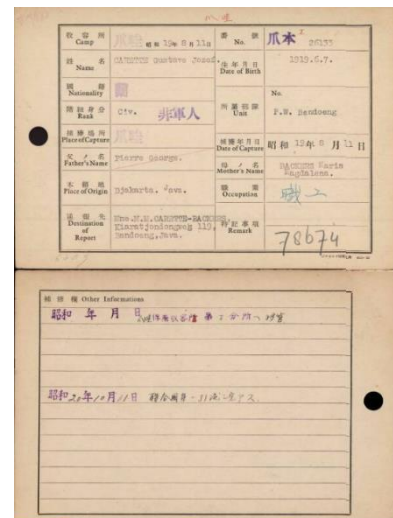 収容所 Camp 爪哇 昭和 19年 8月 11日
番號 No. 爪本 I 26133
姓名 Name CARETTE Gustave Josef.
生年月日 Date of Birth 1919.6.7.
國籍 Nationality 蘭
No.
階級身分 Rank Civ. 非軍人
所屬部隊 Unit P.W. Bendoeng
捕獲場所 Place of Capture 爪哇
捕獲年月日 Date of Capture 昭和 19年 8月 11日
父ノ名 Father's Name Pierre George.
母ノ名 Mother's Name BACKERS Maria
Magdalena.
本籍地 Place of Origin Djakarta. Java.
職業 Occupation 職工
通報先 Destination of Report Mme.M.M.CARETTE-BACKERS,
Kiaratjondongweg 119,
Bandoeng,Java.
特記事項 Remark
78674
補捗欄 Other Informations
昭和 年 月 日
昭和20年10月11日